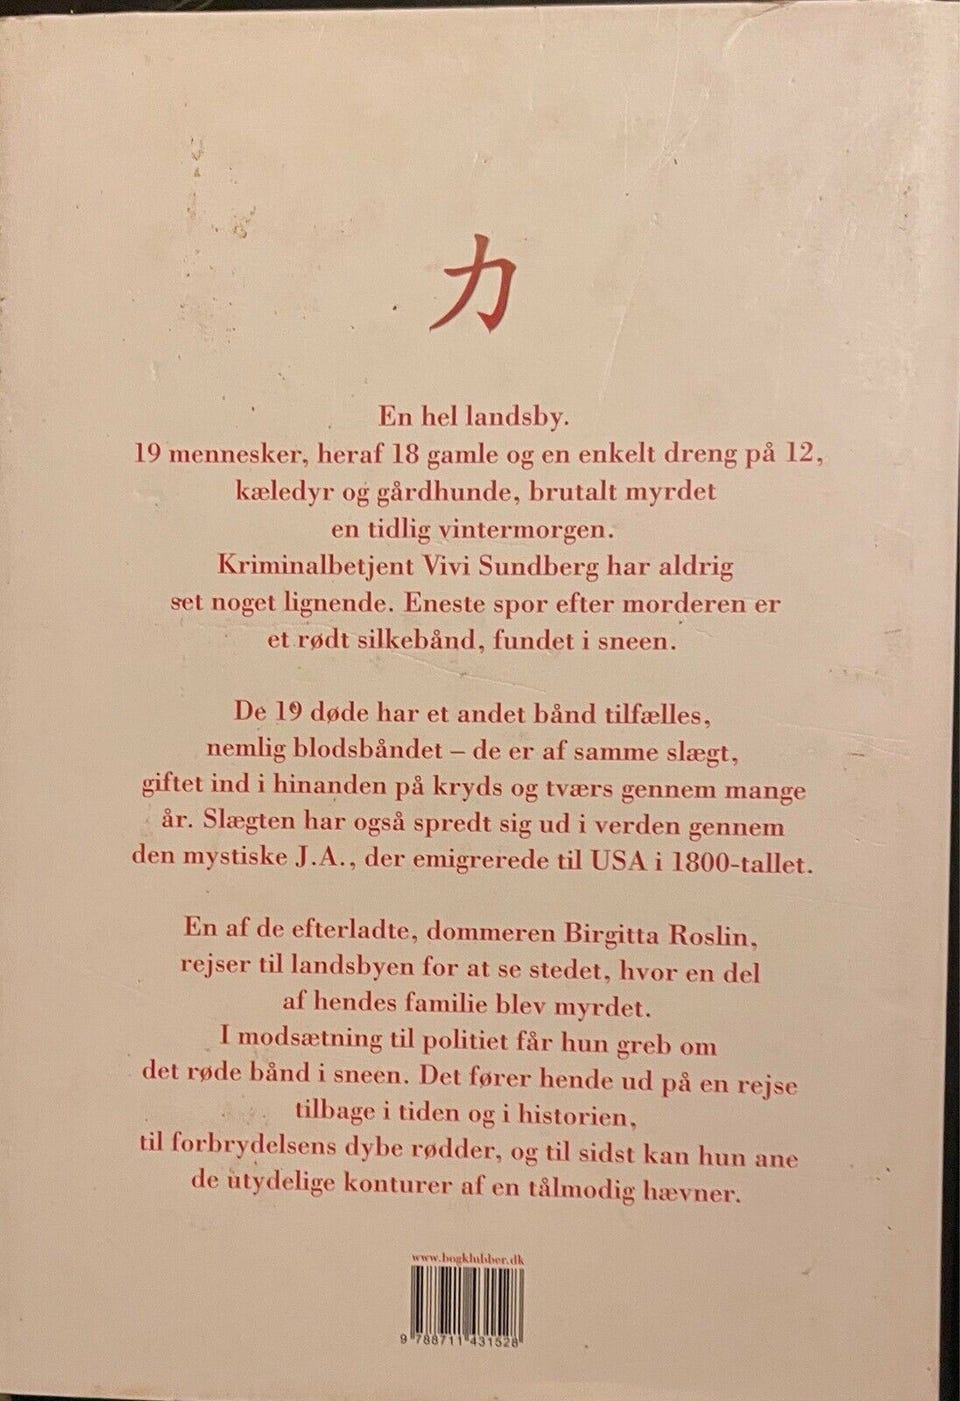 力
En hel landsby.
19 mennesker, heraf 18 gamle og en enkelt dreng på 12,
kæledyr og gårdhunde, brutalt myrdet
en tidlig vintermorgen.
Kriminalbetjent Vivi Sundberg har aldrig
set noget lignende. Eneste spor efter morderen er
et rødt silkebånd, fundet i sneen.
De 19 døde har et andet bånd tilfælles,
nemlig blodsbåndet – de er af samme slægt,
giftet ind i hinanden på kryds og tværs gennem mange
år. Slægten har også spredt sig ud i verden gennem
den mystiske J.A., der emigrerede til USA i 1800-tallet.
En af de efterladte, dommeren Birgitta Roslin,
rejser til landsbyen for at se stedet, hvor en del
af hendes familie blev myrdet.
I modsætning til politiet får hun greb om
det røde bånd i sneen. Det fører hende ud på en rejse
tilbage i tiden og i historien,
til forbrydelsens dybe rødder, og til sidst kan hun ane
de utydelige konturer af en tålmodig hævner.
www.bogklubber.dk
9 788711 431528